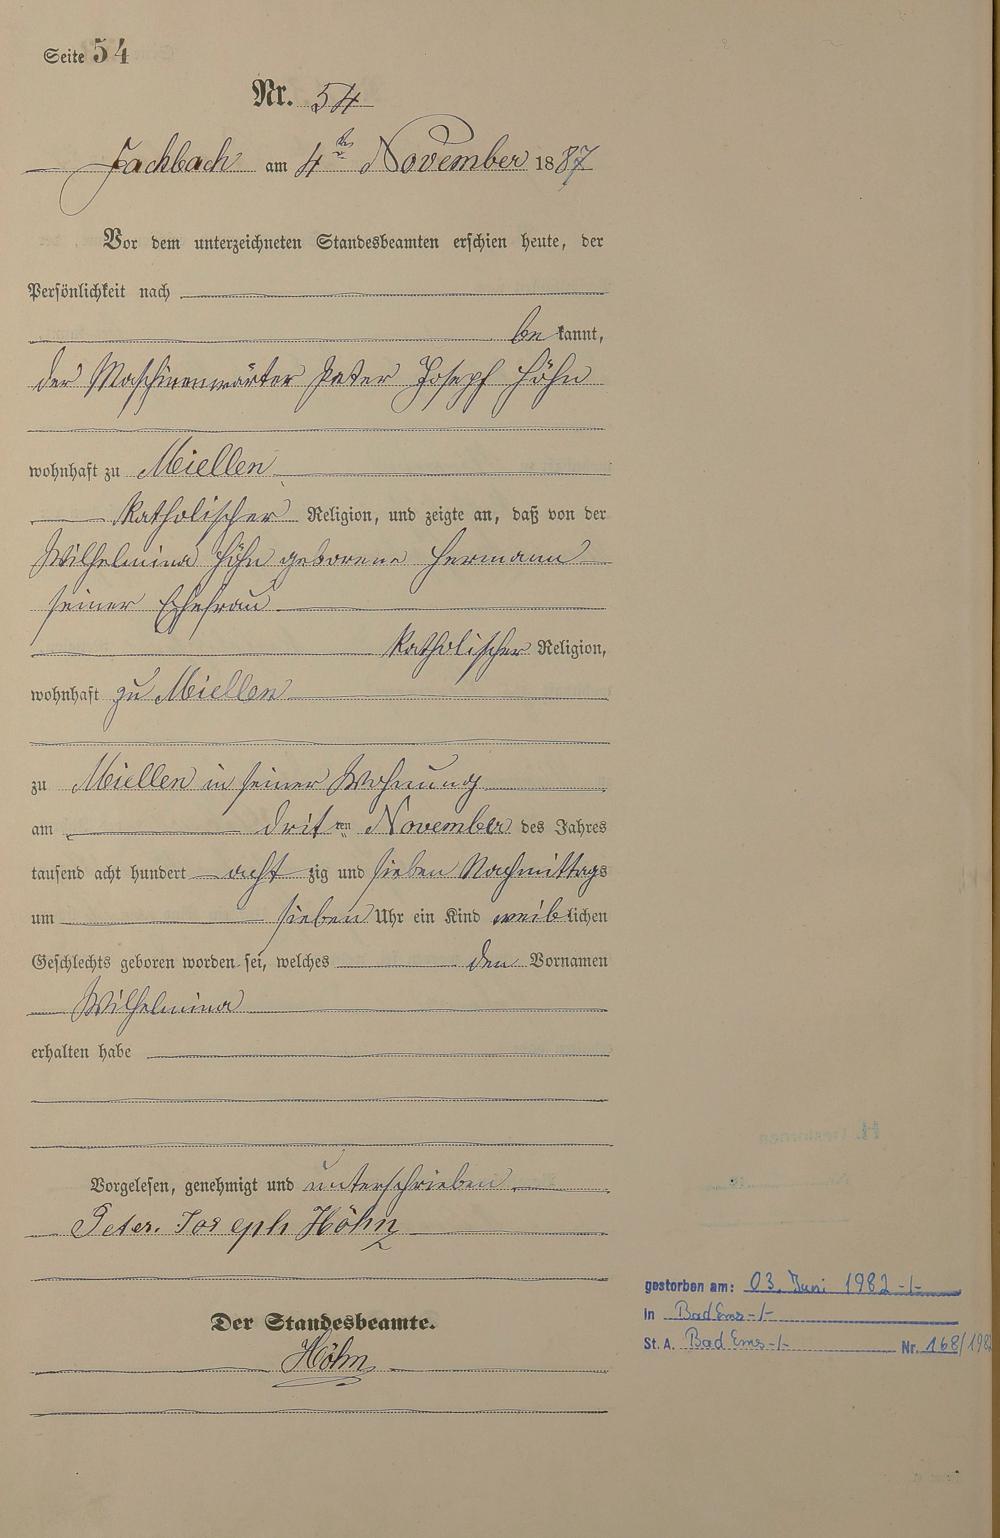 Seite 54
Nr. 54
Fachbach am 4ten November 1887
Vor dem unterzeichneten Standesbeamten erschien heute, der
Persönlichkeit nach
bekannt,
der Maschinenwärter Peter Joseph Höhn
wohnhaft zu Miellen
katholischer Religion, und zeigte an, daß von der
Wilhelmina Höhn geborene Hermann
seiner Ehefrau
katholischer Religion,
wohnhaft zu Miellen
zu Miellen in seiner Wohnung
am dritten November des Jahres
tausend acht hundert achtzig und sieben Nachmittags
um sieben Uhr ein Kind weiblichen
Geschlechts geboren worden sei, welches den Vornamen
Wilhelmina
erhalten habe
Vorgelesen, genehmigt und unterschrieben
Peter. Joseph Höhn
gestorben am: 03. Juni 1982 -/-
in Bad Ems -/-
Der Standesbeamte.
St. A. Bad Ems -/- Nr. 168/198
Höhn